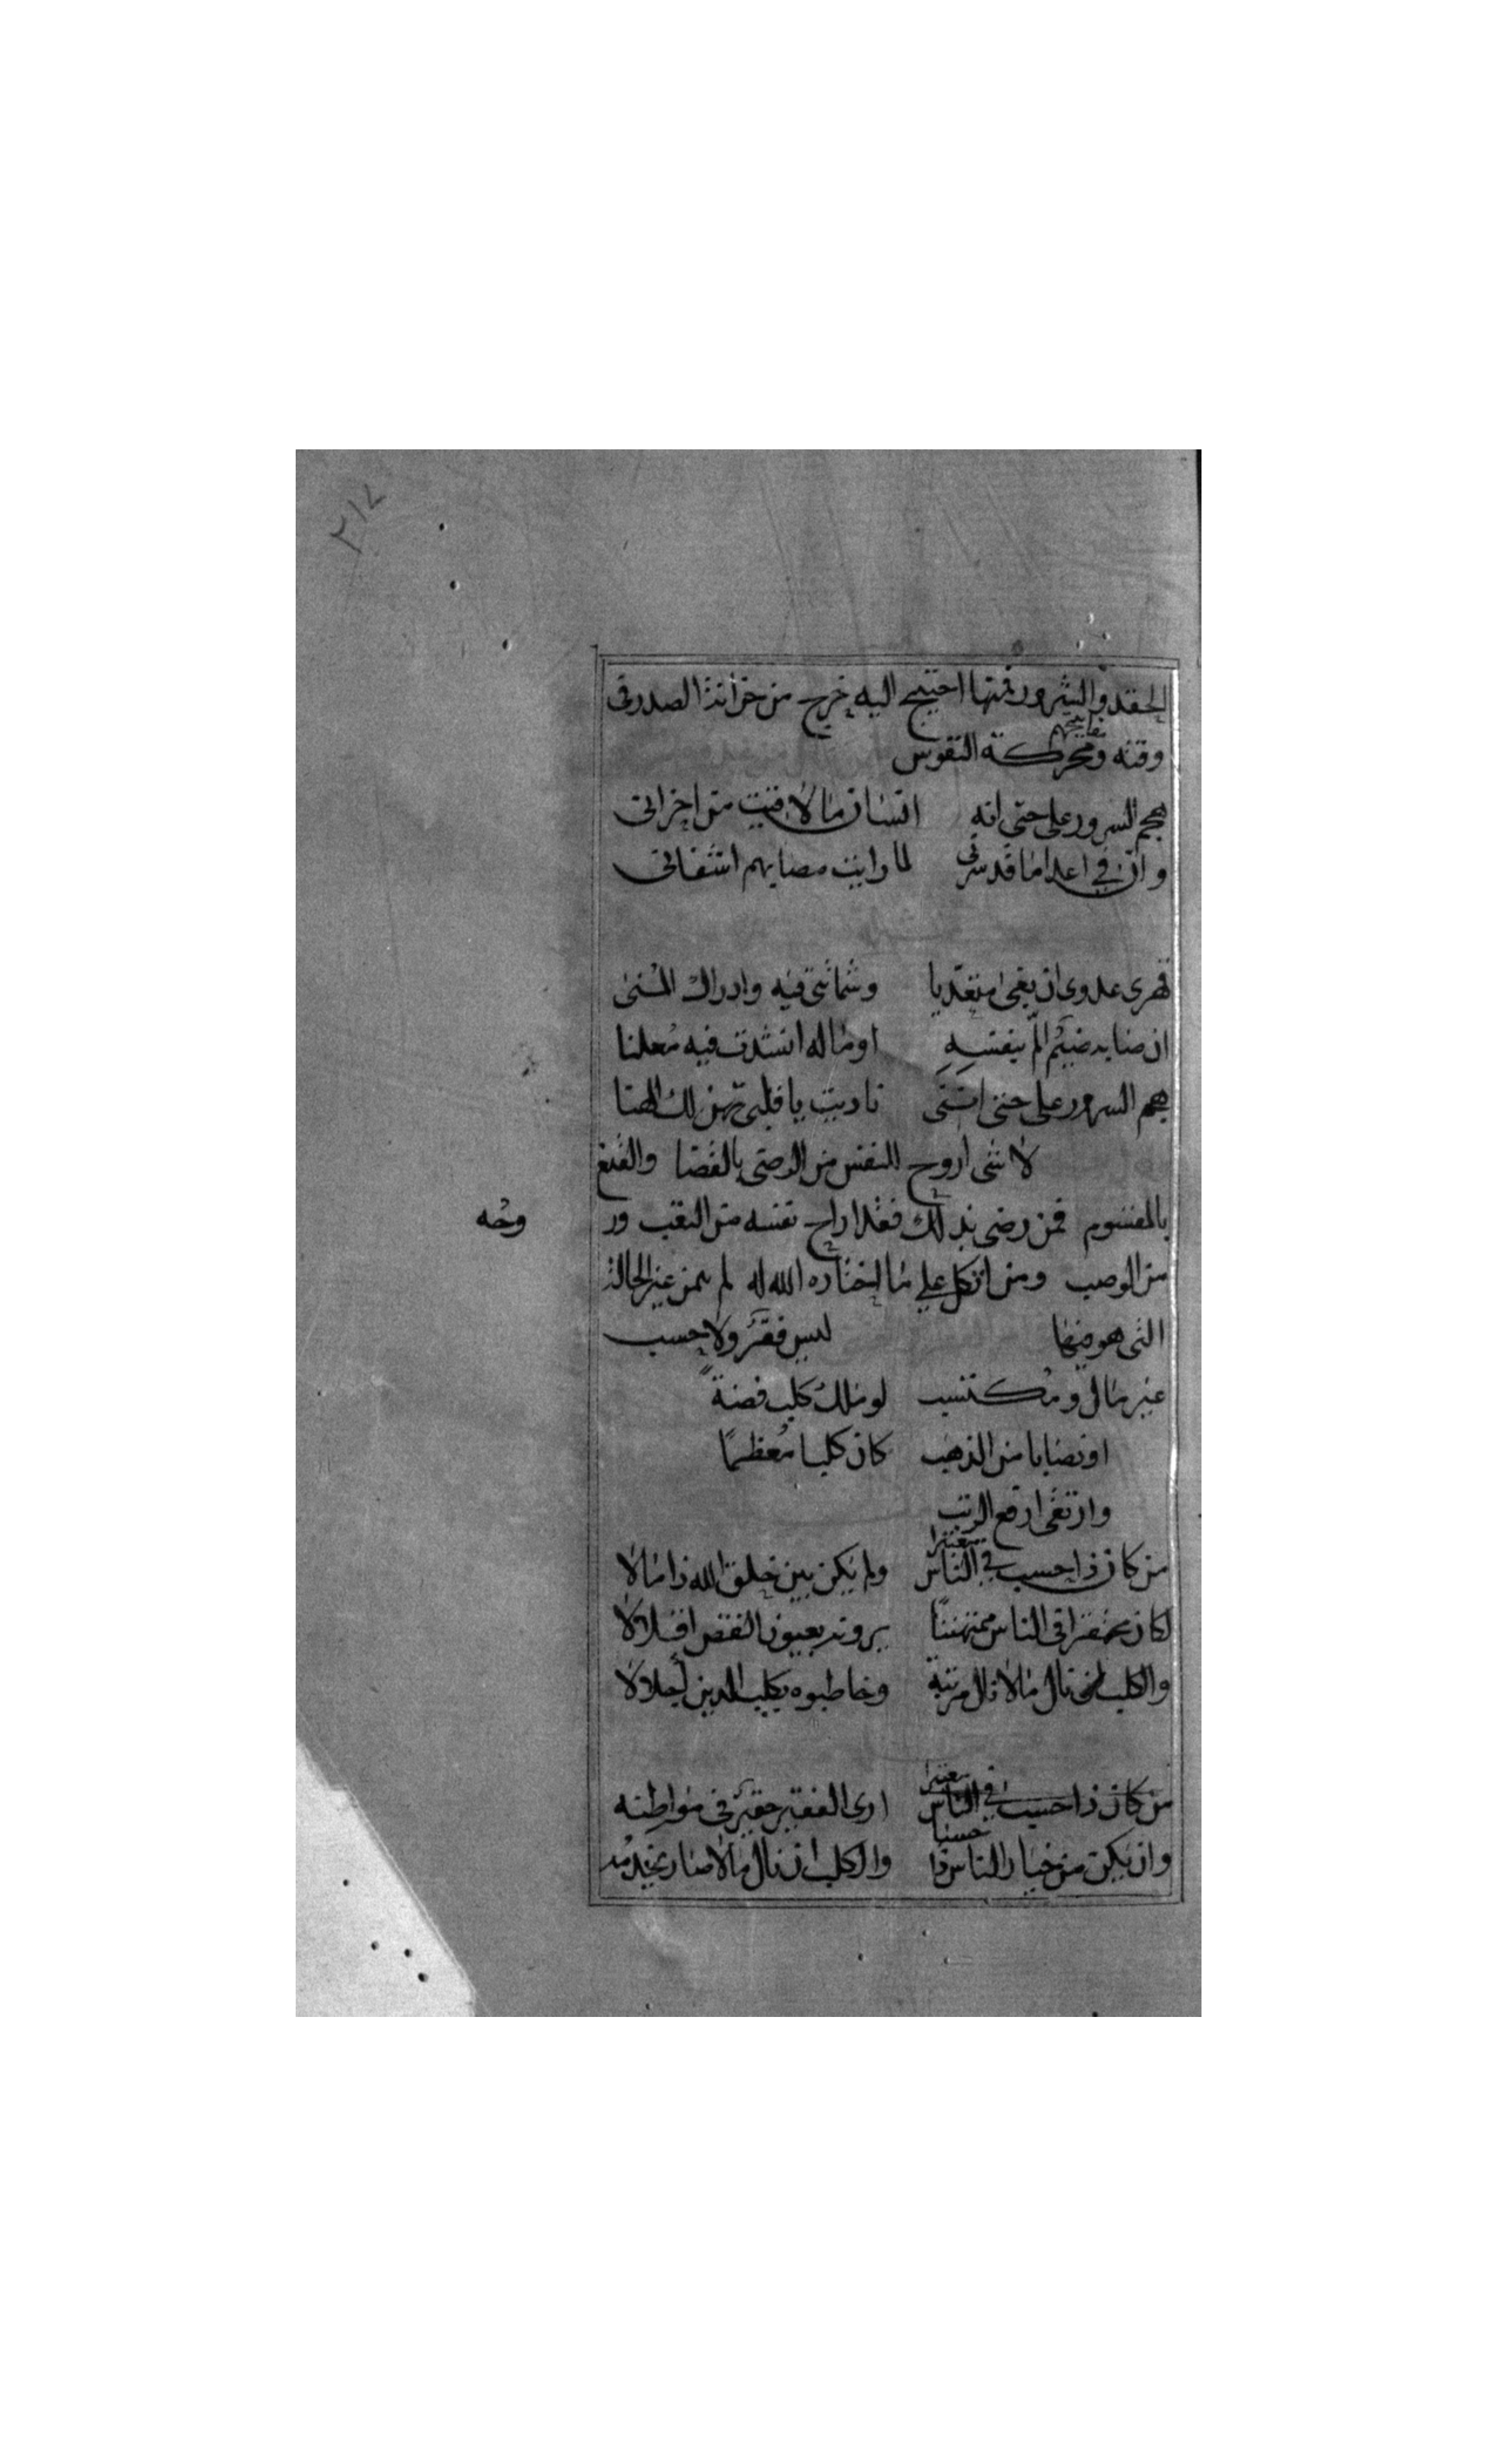 ٢١٤
الحقد والشرور فمتها احتيج اليه خرج من خزانة الصدر في
نفايحهم
وقته ومحركة النفوس
هجم السرور على حتى انه انسان ما لاقيت من احزاني
وان في اعدا ما قد سرني لما رايت مصايبهم اشفاني
قهري عدوي ان بغى متعديا وشماتتي فيه وادراك المنى
ان صابه ضيم الم بنفسه او ماله انشدت فيه معلنا
هجم السرور على حتى انتشى ناديت يا قلبي تهن لك الهنا
لا شي اروح للنفس من الرضى بالقضا والقنع
بالمقسوم فمن رضى بذلك فقد اراح نفسه من التعب ور
وحه
من الوصب ومن اتكل على ما اختاره الله له لم يتمن غير الحالة
التي هو فيها ليس فقر ولا حسب
غير مال ومكتسب لو ملك كلب فضة
او نصابا من الذهب كان كلبا معظما
وارتقى ارفع الرتب
معتبرا
من كان ذا حسب في الناس ولم يكن بين خلق الله ذا مالا
لكان محتقرا في الناس ممتهنا يرونه بعيون النقص اقلالا
والكلب ان نال مالا نال مرتبة وخاطبوه بكلب الدين اجلالا
معتبرا
من كان ذا حسب في الناس ارى الفقير حقير في مواطنه
حسبا
وان يكن من خيار الناس ذا والكلب ان نال مالا صار يخدمه